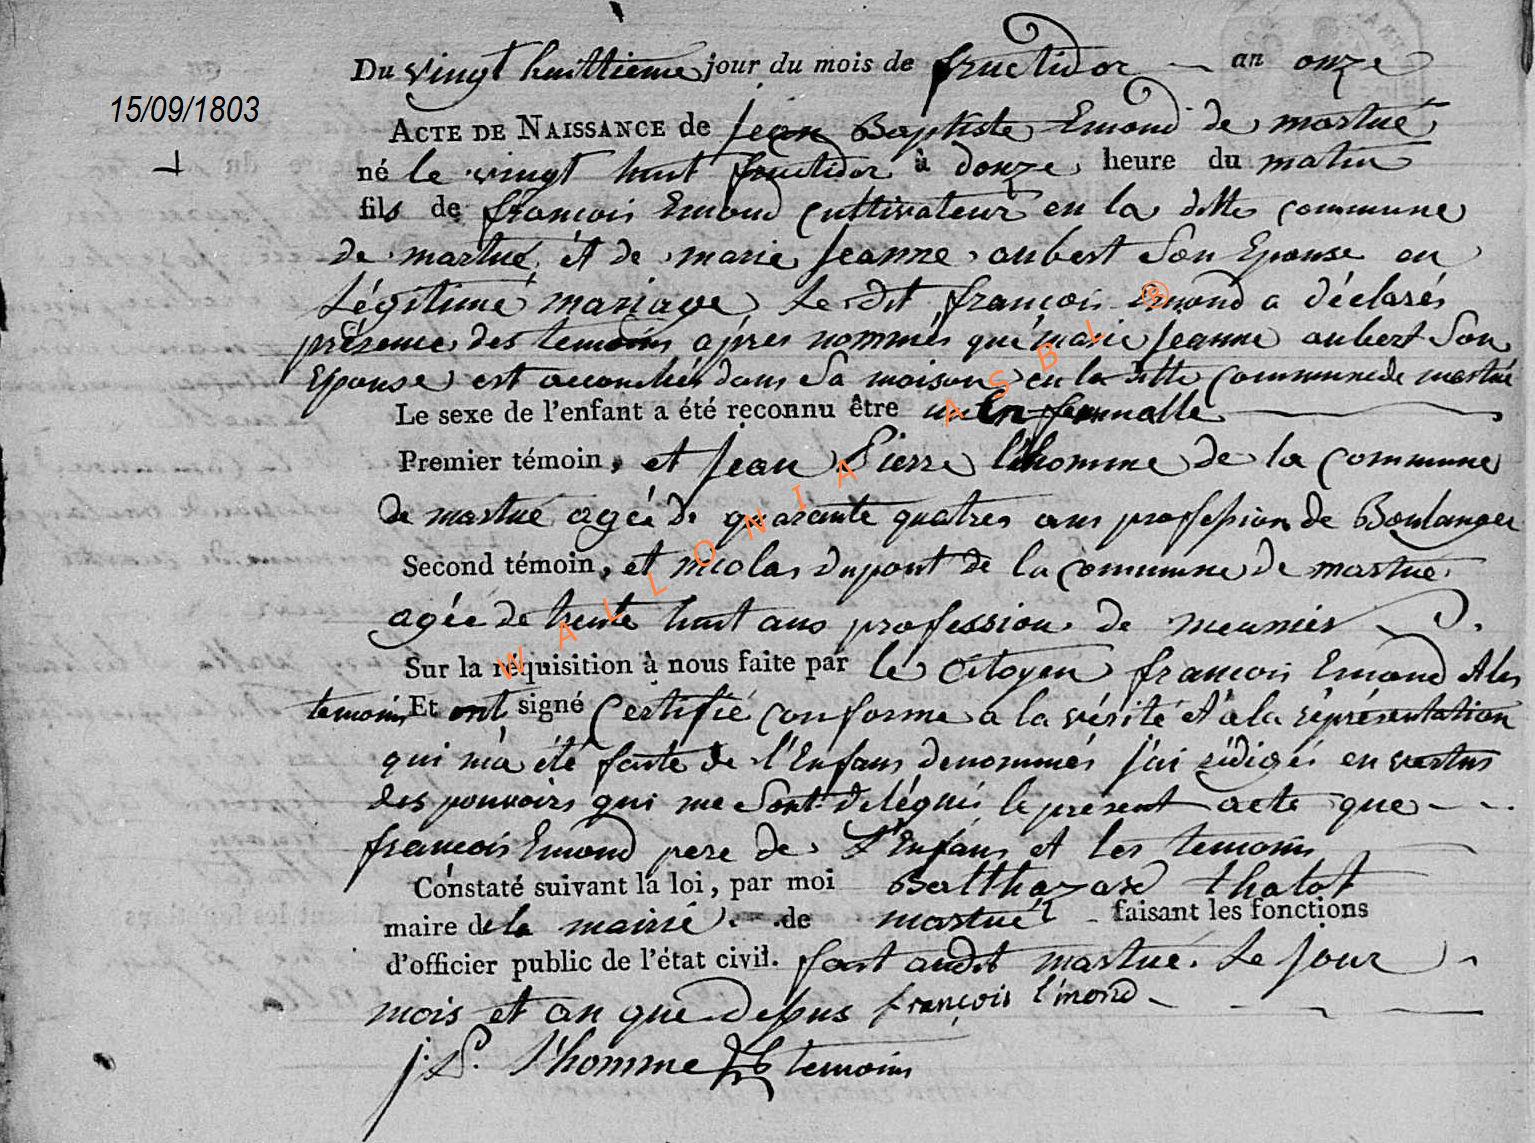 Du vingt huittieme jour du mois de fructidor - an onze
15/09/1803
ACTE DE NAISSANCE de jean Baptiste Emond de martué
né le vingt huit fructidor à donze heure du matin
fils de françois Emond cultivateur en la ditte commune
de martué, et de marie jeanne aubert son Epouse en
Légitime mariage, Le dit françois Emond a déclarés
présence des temoins apres nommés que marie jeanne aubert son
Epouse est accouchés dans sa maison en la ditte commune de martué
Le sexe de l'enfant a été reconnu être un
Premier témoin, et jean Pierre l'homme de la commune
de martué agée de quarante quatres ans profession de Boulanger
Second témoin, et nicolas dupont de la commune de martué
agée de trente huit ans profession de meunier
Sur la réquisition à nous faite par le citoyen françois Emond et les
temoins Et ont signé Certifié conforme a la vérité et a la représentation
qui m'a été faite de l'Enfans denommés j'ai rédigés en vertus
des pouvoirs qui me sont délégués le présent acte que - -
françois Emond pere de L'Enfans et les temoins
Constaté suivant la loi, par moi Balthazard thalot
maire de la mairie de martué - faisant les fonctions
d'officier public de l'état civil. fait audit martué. Le jour
mois et an que dessus françois Emond -
j. P. l'homme temoins
WALLONIA ASBL ®